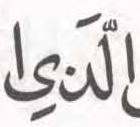 الَّذِي